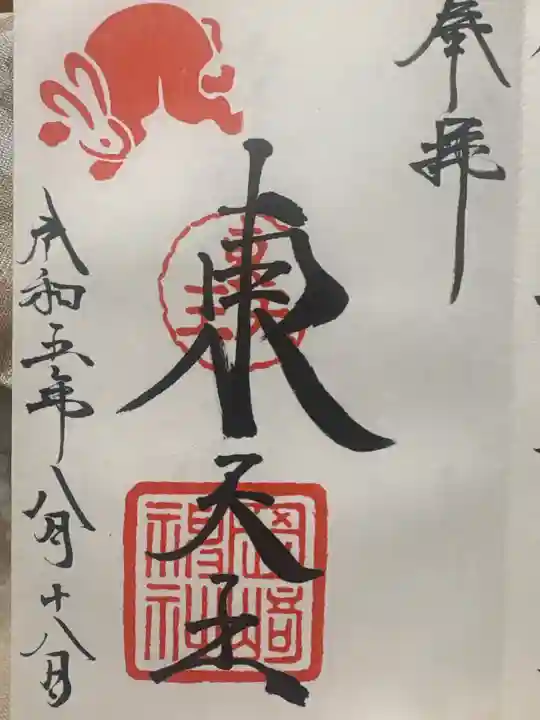 奉拝
東天王
岡崎神社
令和五年八月十八日